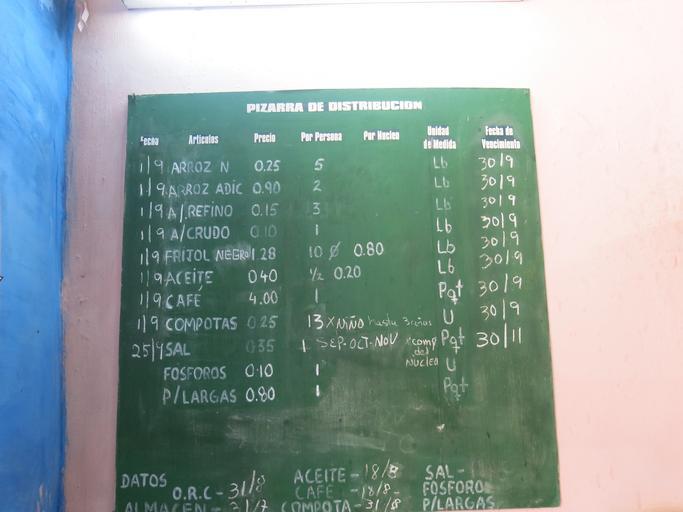 PIZARRA DE DISTRIBUCION
Fecha Articulos Precio Por Persona Por Nucleo Unidad de Medida Fecha de Vencimiento
1/9 ARROZ N 0.25 5 Lb 30/9
1/9 ARROZ ADIC 0.90 2 Lb 30/9
1/9 A/.REFINO 0.15 3 Lb 30/9
1/9 A/CRUDO 0.10 1 Lb 30/9
1/9 FRIJOL NEGRO 1.28 10 Ø 0.80 Lb 30/9
1/9 ACEITE 0.40 1/2 0.20 Lb 30/9
1/9 CAFÉ 4.00 1 Pqt 30/9
1/9 COMPOTAS 0.25 13 X NIÑO hasta 3 años U 30/9
25/9 SAL 0.35 1 SEP-OCT-NOV x comp del NUCLEO Pqt 30/11
FOSFOROS 0.10 1 U
P/LARGAS 0.80 1 Pqt
DATOS ACEITE - 18/8 SAL -
O.R.C - 31/8 CAFE - 18/8 - FOSFORO
ALMACEN - 31/7 COMPOTA - 31/8 P/LARGAS